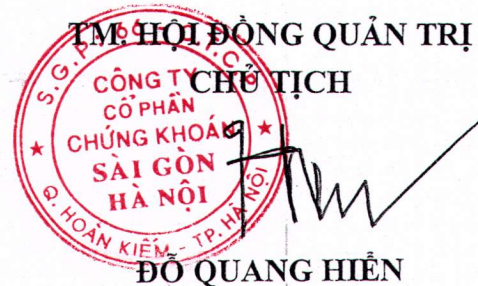 TM. HỘI ĐỒNG QUẢN TRỊ
CHỦ TỊCH
CÔNG TY
CỔ PHẦN
CHỨNG KHOÁN
SÀI GÒN
HÀ NỘI
Q. HOÀN KIẾM - TP. HÀ NỘI
ĐỖ QUANG HIỂN